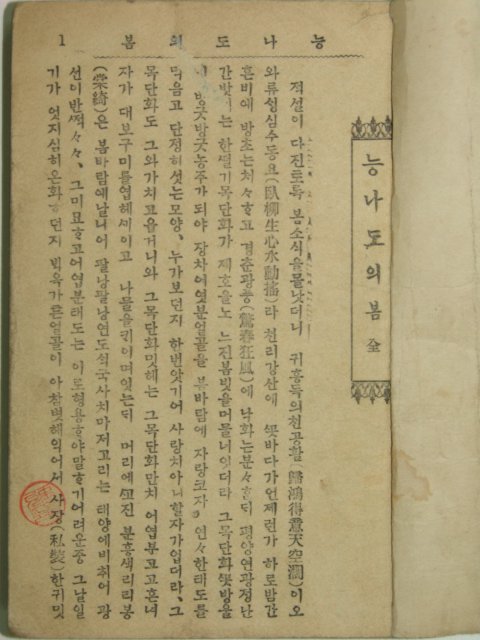 능나도의봄 全
능나도의봄 1
적설이 다진토록 봄소식을몰낫더니 귀홍득의천공활(歸鴻得意天空濶)이오
와류싱심수동요(臥柳生心水動搖)라 천리강산에 ᄭᅩᆺ바다가언제런가 하로밤간
흔비에 방초는처々ᄒᆞ고 경춘광풍(驚春狂風)에 낙화는분々ᄒᆞᆫᄃᆡ 평양연광정난
간밧 는 한ᄯᅥᆯ기목단화가 제호을노 느진봄빗을머믈너잇더라 그목단화ᄭᅩᆺ방울
이 방긋방긋 되야 장차어엿분얼골을 봄바람에 자랑코자 연々한태도를
먹음고 단정히섯는모양、누가보던지 한번앗기어 사랑치아니할자가업더라、그
목단화도 그와가치고읍거니와 그목단화밋헤는 그목단화만치 어엽부고고흔녀
자가 대보구미를엽헤세이고 나물을ᄏᆡ이며잇는ᄃᆡ 머리에 진 분홍색리리봉
(棠綺)은 봄바람에날니어 팔낭팔낭 연도식국사치마저고리는 태양에비취어 광
선이반ᄶᅥᆨ々々、그미묘ᄒᆞ고어엽분태도는 이로형용ᄒᆞ야말ᄒᆞ기어려운중 그날일
기가 엇지심히온화ᄒᆞ던지 ᄇᆡᆨ옥가튼얼골이 아참볏헤익어서 사장(私裝)한귀밋